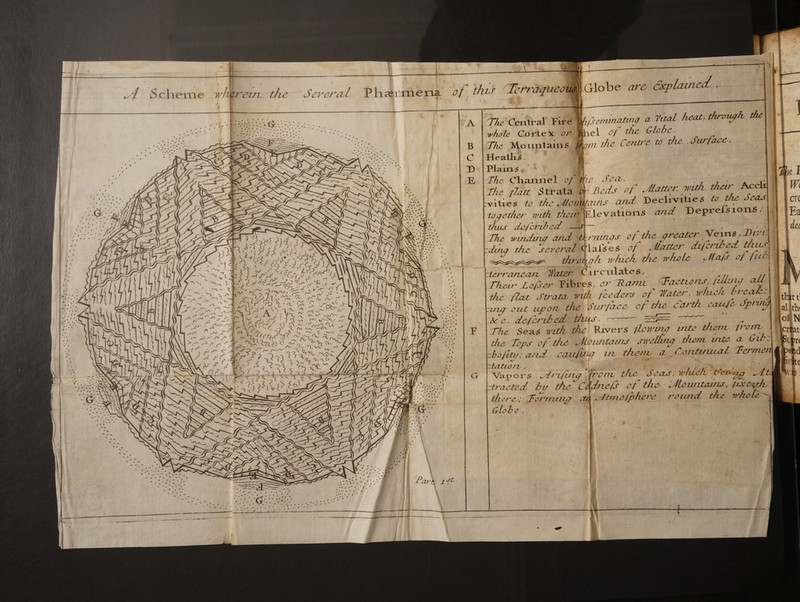 A Scheme wherein the Several Phænmena of this Terraqueous Globe are Explained.
A The Central Fire disseminating a Vital heat, through the
whole Cortex or Shel of the Globe.
B The Mountains from the Centre to the Surface.
C Heaths
D Plains
E The Channel of the Sea.
The flatt Strata or Beds of Matter with their Accli
vities to the Mountains and Declivities to the Seas
together with their Elevations and Depressions.
thus described
The winding and turnings of the greater Veins, Divi:
:ding the several Claises of Matter discribed thus
through which the whole Mass of Sub
:terranean Water Circulates.
Their Lesser Fibres, or Rami Factions, filling all
the flat Strata with feeders of Water, which break:
:ing out upon the Surface of the Earth cause Spring
&c. described thus.
F The Seas with the Rivers flowing into them from
the Tops of the Mountains swelling them into a Gib:
:bosity; and causing in them a Continual Fermen
:tation.
G Vapors Arising from the Seas, which being At:
:tracted by the Coldness of the Mountains, fixeth
there; Forming an Atmosphere round the whole
Globe.
G
F
G
G
G
A
B
B
G
G
F
G
Part. 1st.